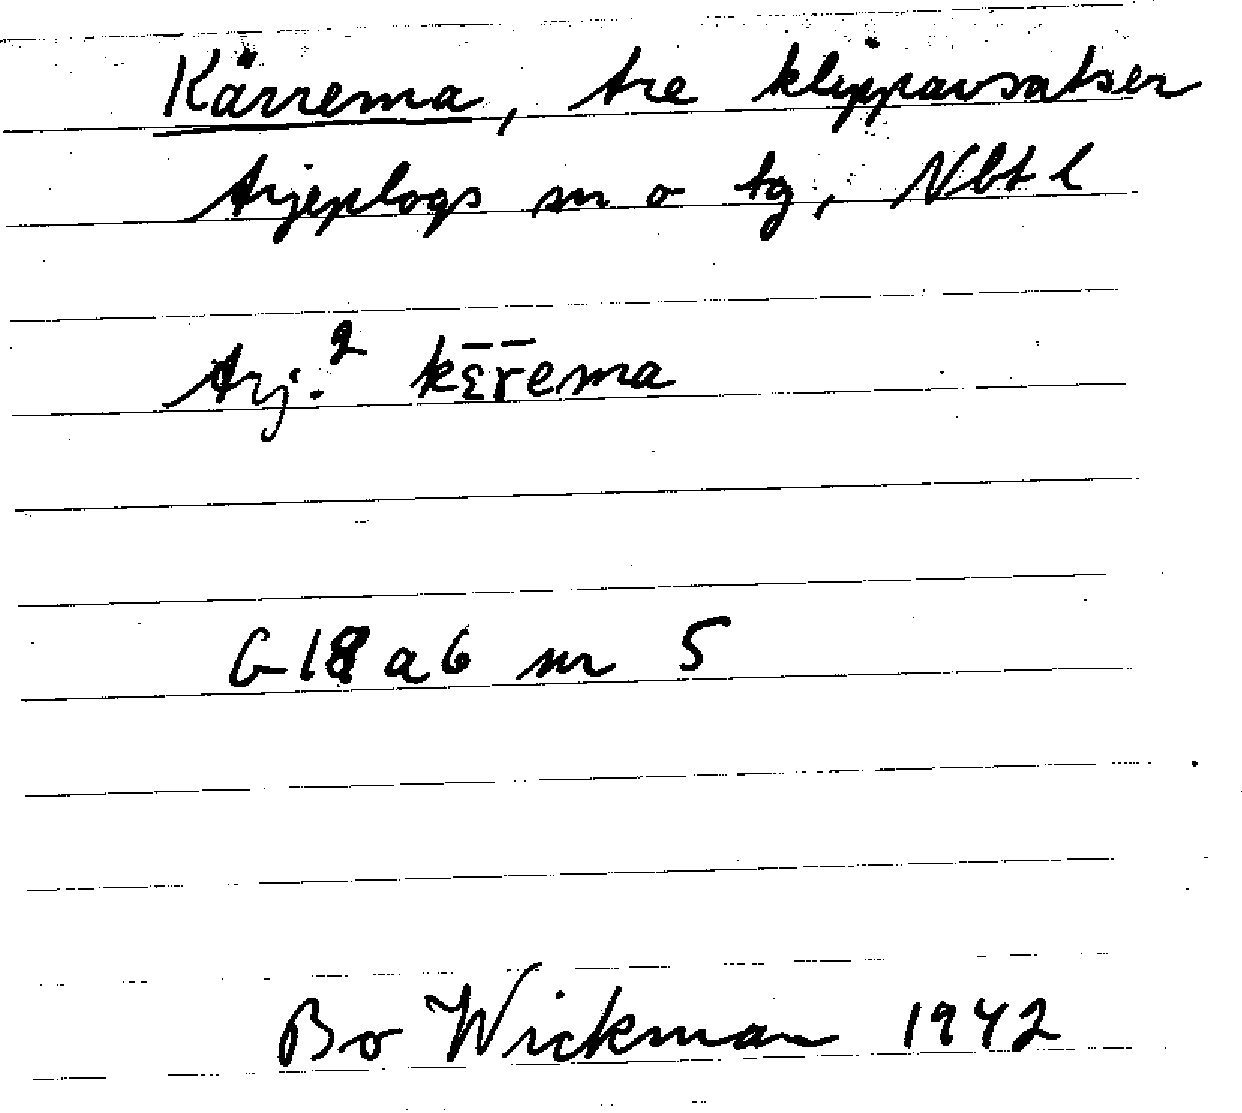 Kärrema, tre klippavsatser
Arjeplogs sn o tg, Nbt l
Arj.² kε̄r̄ema
G 18 a 6 nr 5
Bo Wickman 1942